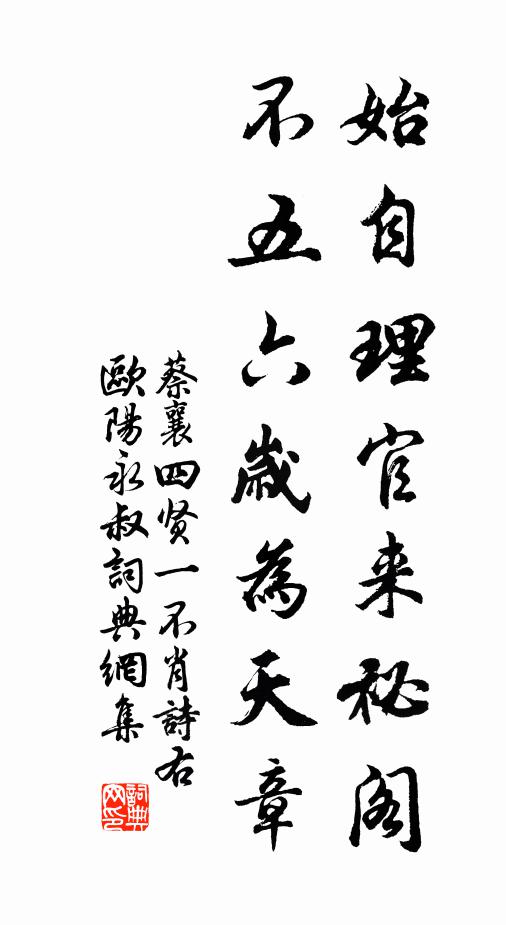 始自理官来秘阁
不五六歲為天章
蔡襄四贤一不肖詩右
歐陽永叔詞典網集
詞典网印